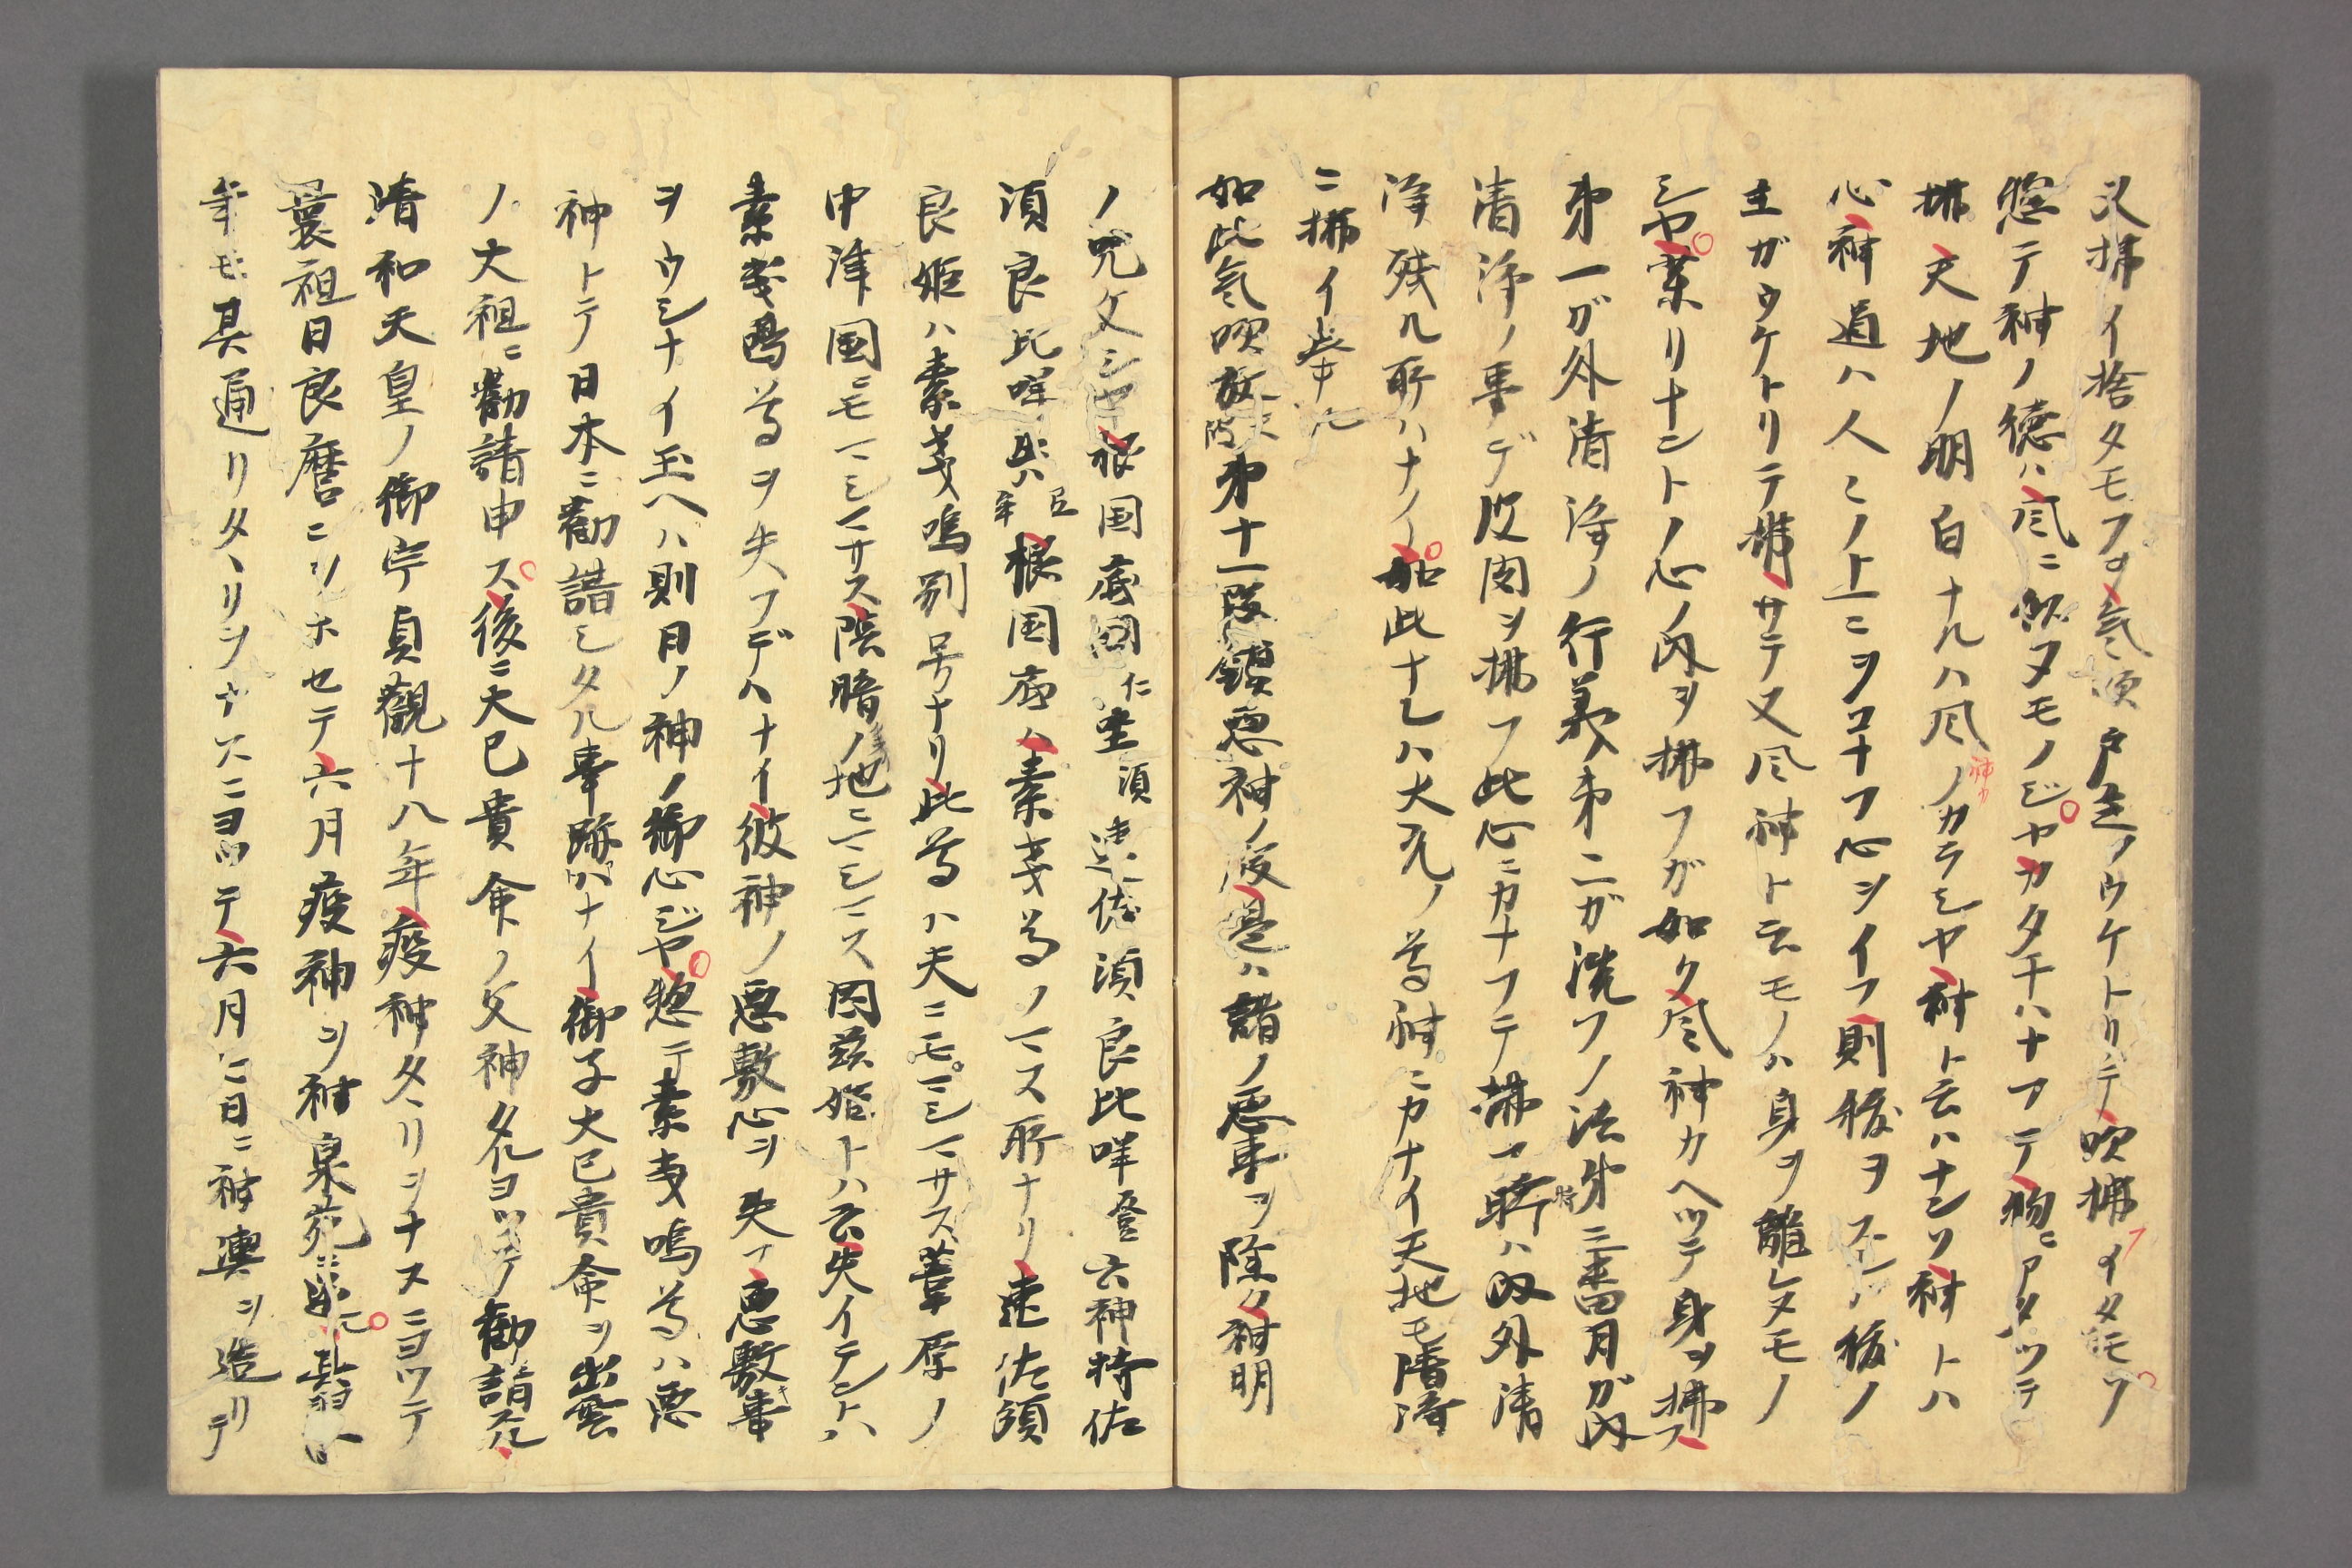 又拂イ捨タモフヲ気須戸主ノウケトリテ吹拂イタモフ
惣テ神ノ徳ハ風ニ似タモノジヤカタチハナフテ物ニアタツテ
拂天地ノ明白ナルハ風ノカラシヤ神ト云ハナンソ神トハ
心神道ハ人々ノ上ニヲコナフ心ヲイフ則秡ヲスレハ秡ノ
主ガウケトリテ拂サテ又風神ト云モノハ身ヲ離レヌモノ
シヤ業リナントノ心ノ内ヲ拂フガ如ク風神カヘツテ身ヲ拂フ
第一ガ外清浄ノ行義第二ガ洗フノ法第三番目ガ内
清浄ノ事デ皮肉ヲ拂フ此心ニカナフテ拂フ時ハ内外清
浄残ル所ハナイ如此ナレハ大元ノ尊神ニカナイ天地モ清浄
ニ拂イ奉ル
如此気吹放第十一段鎮悪神ノ段是ハ諸ノ悪事ヲ除ク神明
ノ咒文シヤ根国底国仁坐須速佐須良比咩登云神持佐
須良比咩此ハ根国底ハ素戔尊ノマス所ナリ速佐須
良姫ハ素戔嗚別号ナリ此尊ハ夫ニモマシマサス葦原ノ
中津国ニモマシマサス陰暗ノ地ニマシマス因茲始トハ云失イテントハ
素戔烏尊ヲ失フデハナイ彼神ノ悪敷心ヲ失フ悪敷事
ヲウシナイ玉ヘハ則日ノ神ノ御心ジヤ惣テ素戔嗚尊ハ悪
神トテ日本ニ勸請シタル事跡ハナイ御子大已貴命ヲ出雲
ノ大祖ニ勸請申ス後ニ大已貴命ノ父神タルヨツテノ勸請ル
清和天皇ノ御宇貞觀十八年疫神タヽリヲナスニヨツテ
曩祖日良麿ニヲホセテ六月疫神ヲ神泉苑ニ
年モ其通リタヽリヲナスニヨツテ六月二日ニ神輿ヲ造リテ